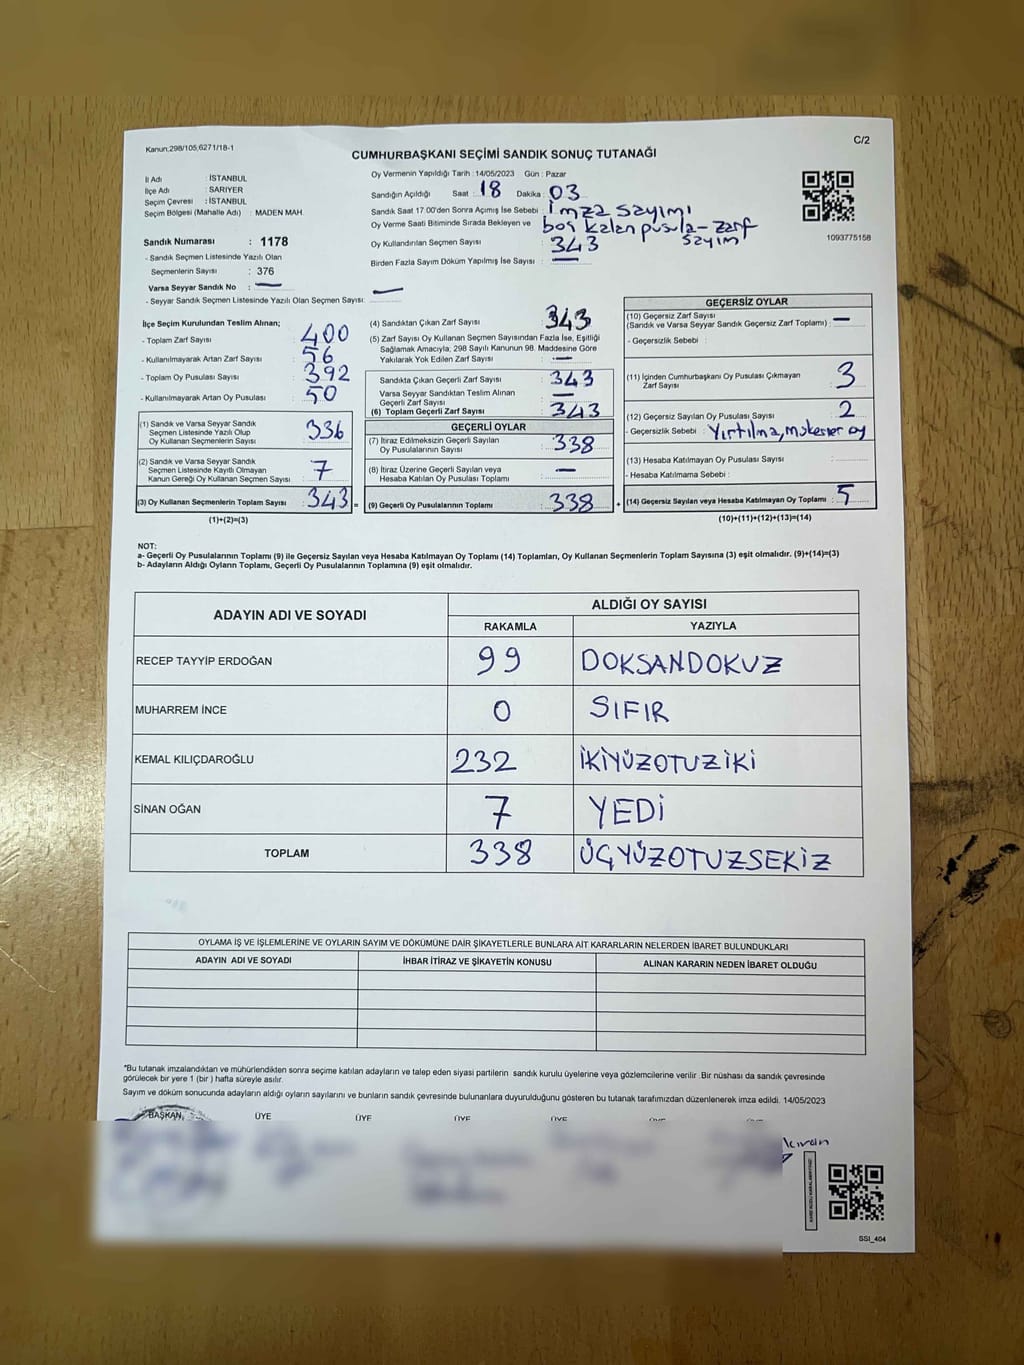 Kanun:298/105,6271/18-1
C/2
CUMHURBAŞKANI SEÇİMİ SANDIK SONUÇ TUTANAĞI
İl Adı : İSTANBUL
İlçe Adı : SARIYER
Seçim Çevresi : İSTANBUL
Seçim Bölgesi (Mahalle Adı) : MADEN MAH.
Sandık Numarası : 1178
- Sandık Seçmen Listesinde Yazılı Olan
Seçmenlerin Sayısı : 376
Varsa Seyyar Sandık No : —
- Seyyar Sandık Seçmen Listesinde Yazılı Olan Seçmen Sayısı: —
Oy Vermenin Yapıldığı Tarih : 14/05/2023 Gün : Pazar
Sandığın Açıldığı Saat : 18 Dakika : 03
Sandık Saat 17:00'den Sonra Açımış İse Sebebi : İmza sayımı
Oy Verme Saati Bitiminde Sırada Bekleyen ve boş kalan pusula-zarf sayım
Oy Kullandırılan Seçmen Sayısı : 343
Birden Fazla Sayım Döküm Yapılmış İse Sayısı : —
1093775158
İlçe Seçim Kurulundan Teslim Alınan;
- Toplam Zarf Sayısı : 400
- Kullanılmayarak Artan Zarf Sayısı : 56
- Toplam Oy Pusulası Sayısı : 392
- Kullanılmayarak Artan Oy Pusulası : 50
(1) Sandık ve Varsa Seyyar Sandık
Seçmen Listesinde Yazılı Olup
Oy Kullanan Seçmenlerin Sayısı : 336
(2) Sandık ve Varsa Seyyar Sandık
Seçmen Listesinde Kayıtlı Olmayan
Kanun Gereği Oy Kullanan Seçmen Sayısı : 7
(3) Oy Kullanan Seçmenlerin Toplam Sayısı : 343 =
(1)+(2)=(3)
(4) Sandıktan Çıkan Zarf Sayısı : 343
(5) Zarf Sayısı Oy Kullanan Seçmen Sayısından Fazla İse, Eşitliği
Sağlamak Amacıyla, 298 Sayılı Kanunun 98. Maddesine Göre
Yakılarak Yok Edilen Zarf Sayısı : —
Sandıkta Çıkan Geçerli Zarf Sayısı : 343
Varsa Seyyar Sandıktan Teslim Alınan
Geçerli Zarf Sayısı : —
(6) Toplam Geçerli Zarf Sayısı : 343
GEÇERLİ OYLAR
(7) İtiraz Edilmeksizin Geçerli Sayılan
Oy Pusulalarının Sayısı : 338
(8) İtiraz Üzerine Geçerli Sayılan veya
Hesaba Katılan Oy Pusulası Toplamı : —
(9) Geçerli Oy Pusulalarının Toplamı : 338 +
GEÇERSİZ OYLAR
(10) Geçersiz Zarf Sayısı
(Sandık ve Varsa Seyyar Sandık Geçersiz Zarf Toplamı) : —
- Geçersizlik Sebebi :
(11) İçinden Cumhurbaşkanı Oy Pusulası Çıkmayan
Zarf Sayısı : 3
(12) Geçersiz Sayılan Oy Pusulası Sayısı : 2
- Geçersizlik Sebebi : Yırtılma, mükerrer oy
(13) Hesaba Katılmayan Oy Pusulası Sayısı :
- Hesaba Katılmama Sebebi :
(14) Geçersiz Sayılan veya Hesaba Katılmayan Oy Toplamı : 5
(10)+(11)+(12)+(13)=(14)
NOT:
a- Geçerli Oy Pusulalarının Toplamı (9) ile Geçersiz Sayılan veya Hesaba Katılmayan Oy Toplamı (14) Toplamları, Oy Kullanan Seçmenlerin Toplam Sayısına (3) eşit olmalıdır. (9)+(14)=(3)
b- Adayların Aldığı Oyların Toplamı, Geçerli Oy Pusulalarının Toplamına (9) eşit olmalıdır.
ADAYIN ADI VE SOYADI ALDIĞI OY SAYISI
RAKAMLA YAZIYLA
RECEP TAYYİP ERDOĞAN 99 DOKSANDOKUZ
MUHARREM İNCE 0 SIFIR
KEMAL KILIÇDAROĞLU 232 İKİYÜZOTUZİKİ
SİNAN OĞAN 7 YEDİ
TOPLAM 338 ÜÇYÜZOTUZSEKİZ
OYLAMA İŞ VE İŞLEMLERİNE VE OYLARIN SAYIM VE DÖKÜMÜNE DAİR ŞİKAYETLERLE BUNLARA AİT KARARLARIN NELERDEN İBARET BULUNDUKLARI
ADAYIN ADI VE SOYADI İHBAR İTİRAZ VE ŞİKAYETİN KONUSU ALINAN KARARIN NEDEN İBARET OLDUĞU
*Bu tutanak imzalandıktan ve mühürlendikten sonra seçime katılan adayların ve talep eden siyasi partilerin sandık kurulu üyelerine veya gözlemcilerine verilir. Bir nüshası da sandık çevresinde
görülecek bir yere 1 (bir ) hafta süreyle asılır.
Sayım ve döküm sonucunda adayların aldığı oyların sayılarını ve bunların sandık çevresinde bulunanlara duyurulduğunu gösteren bu tutanak tarafımızdan düzenlenerek imza edildi. 14/05/2023
BAŞKAN ÜYE ÜYE ÜYE ÜYE
SSI_404